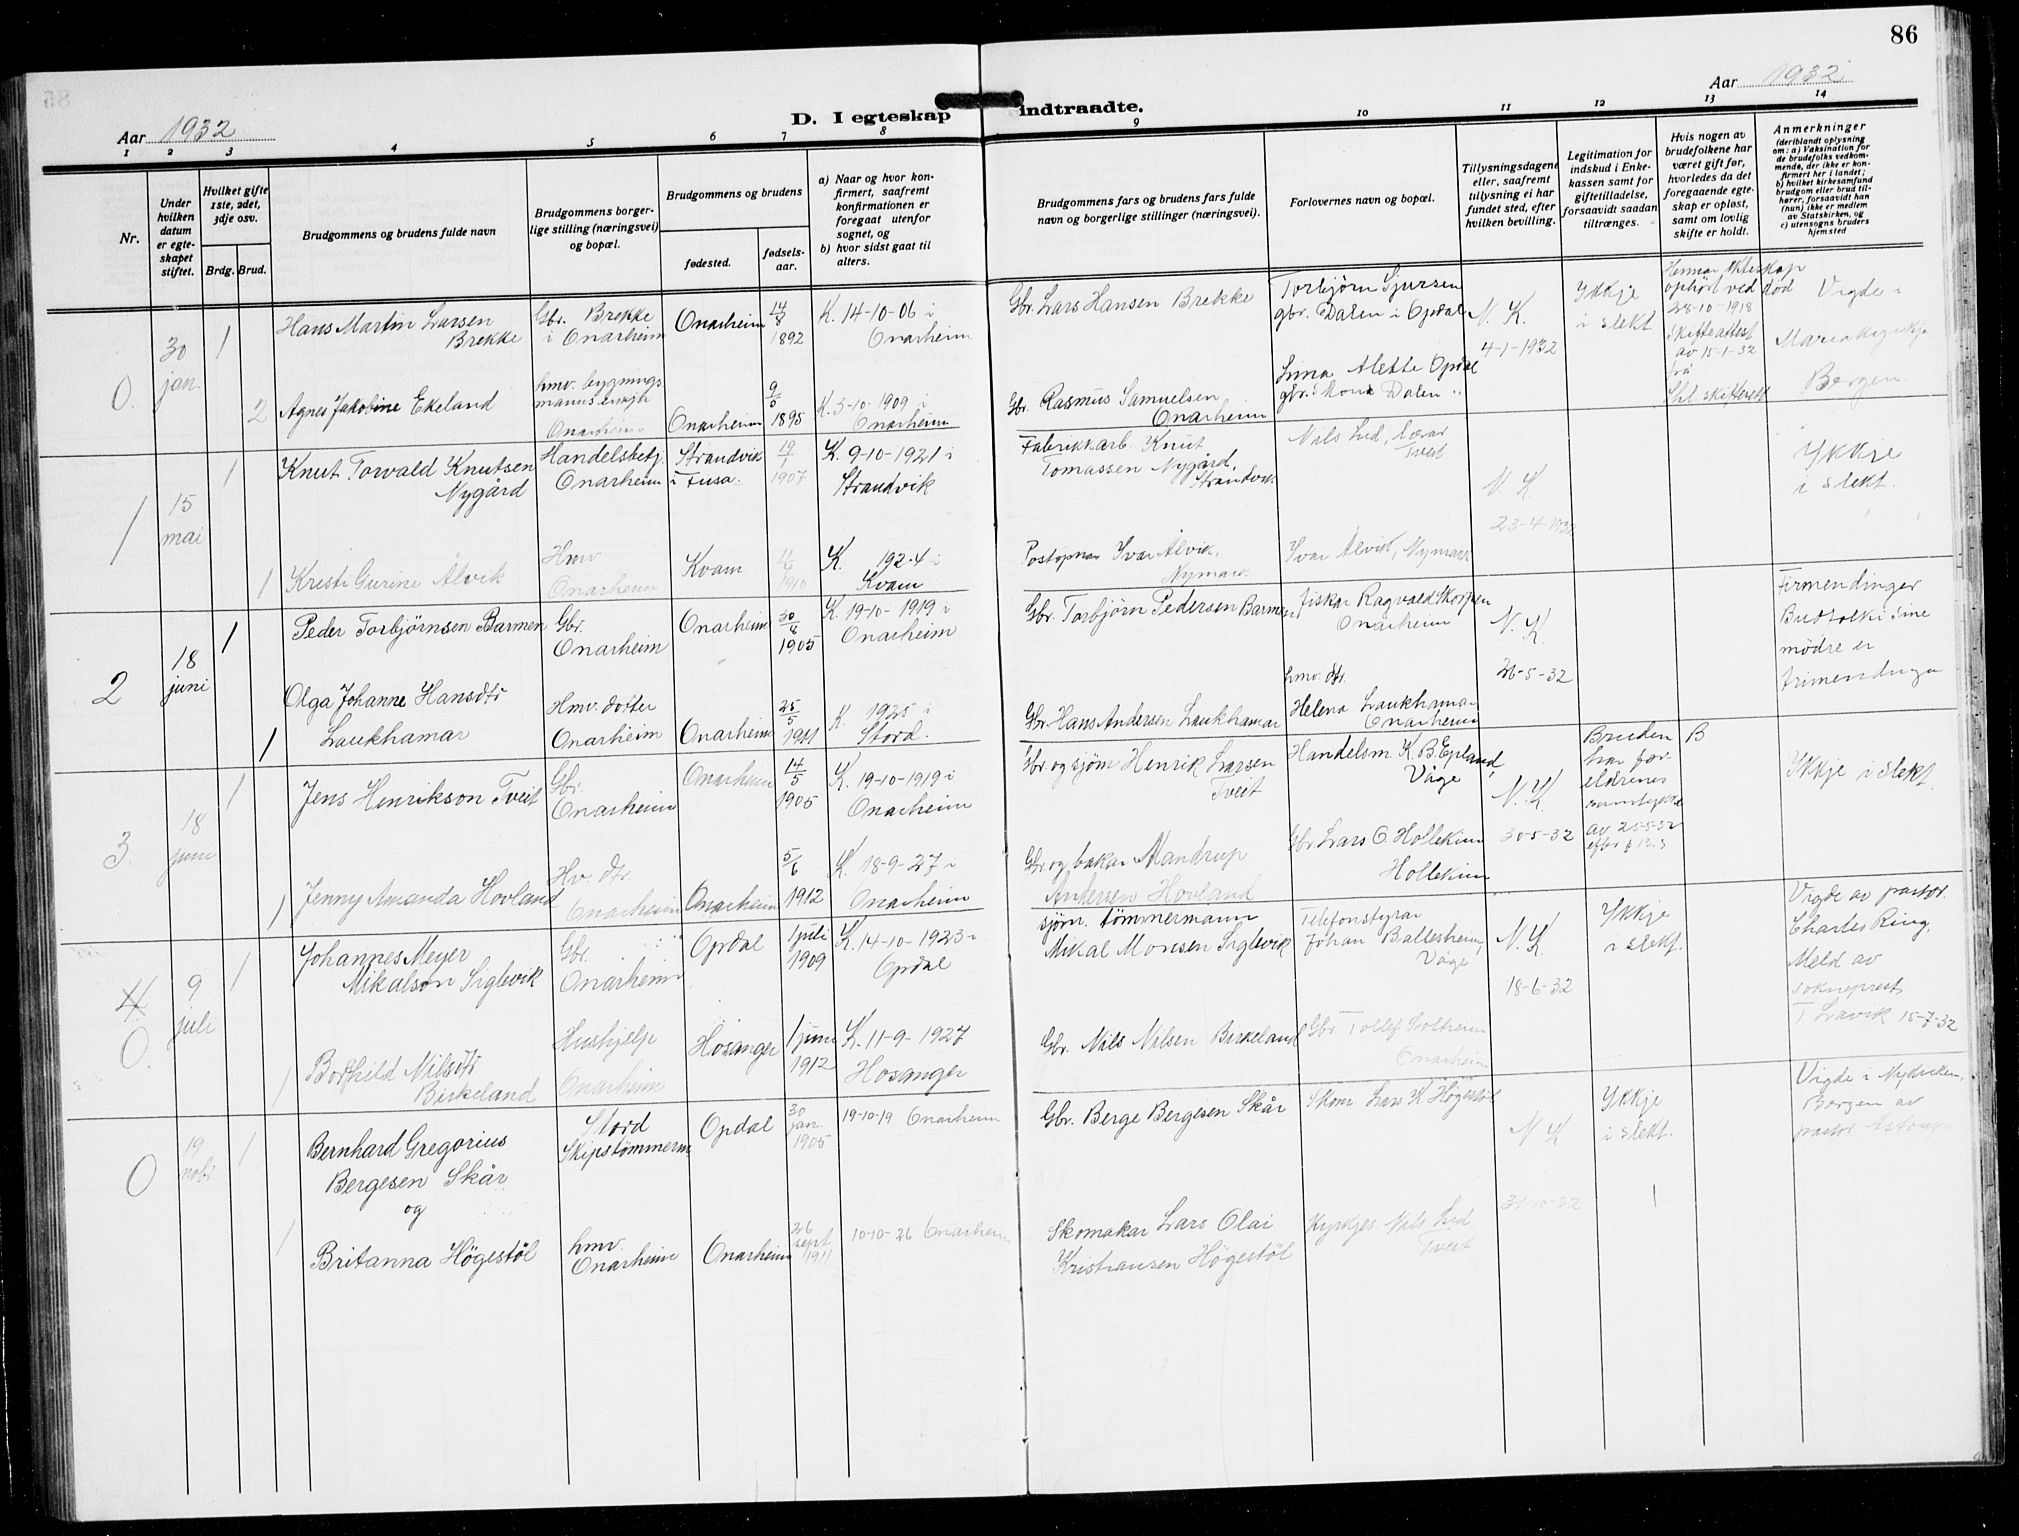 86
Aar 1932
Aar 1932
D. I egteskap indtraadte.
1 2 3 4 5 6 7 8 9 10 11 12 13 14
Nr.
Under hvilken datum er egteskapet stiftet.
Hvilket gifte 1ste, 2det, 3dje osv.
Brdg. Brud.
Brudgommens og brudens fulde navn
Brudgommens borgerlige stilling (næringsvei) og bopæl.
Brudgommens og brudens
fødested.
fødselsaar.
a) Naar og hvor konfirmert, saafremt konfirmationen er foregaat utenfor sognet, og
b) hvor sidst gaat til alters.
Brudgommens fars og brudens fars fulde navn og borgerlige stillinger (næringsvei).
Forlovernes navn og bopæl.
Tillysningsdagene eller, saafremt tillysning ei har fundet sted, efter hvilken bevilling.
Legitimation for indskud i Enkekassen samt for giftetilladelse, forsaavidt saadan tiltrænges.
Hvis nogen av brudefolkene har været gift før, hvorledes da det foregaaende egteskap er opløst, samt om lovlig skifte er holdt.
Anmerkninger (deriblandt oplysning om: a) Vaksination for de brudefolks vedkommende, der ikke er konfirmert her i landet; b) hvilket kirkesamfund brudgom eller brud tilhører, forsaavidt han (hun) ikke er medlem av Statskirken, og c) utensogns bruders hjemsted
0. 30 jan. 1
Hans Martin Larsen Brekke
Gbr. Brekke i Onarheim
Onarheim
14/8 1892
K. 14-10-06 i Onarheim
Gbr. Lars Hansen Brekke
Torbjörn Sjursen gbr. Dalen i Opdal
N. K. 4-1-1932
Ikkje i slekt
ophørt ved död 28-10-1918 Skifteattest av 15-1-32 frå
Vigde i Mariakyrkja Bergen.
2
Agnes Jakobine Ekeland
hmv. bygnings
Onarheim
Onarheim
9/5 1895
K. 3-10-1909 i Onarheim
Gbr. Rasmus Samuelsen Onarheim
Lina Alette Opdal gbr. Mons Dalen
1 15 mai 1
Knut Torvald Knutsen Nygård
Handelsbetj. Onarheim
Strandvik i Fusa.
1907
K. 9-10-1921 i Strandvik
Fabrikkarb. Knut Tomassen Nygård, Strandvik
Nils Lid, lærar Tveit
N. K. 23-4-1932
Ikkje i slekt.
1
Kristi Gurine Ålvik
Hmv Onarheim
Kvam
1910
K. 1924 i Kvam
Postopnar Ivar Ålvik, Nymark
Ivar Ålvik, Nymark
2 18 juni 1
Peder Torbjørnsen Barmen
Gbr. Onarheim
Onarheim
30/8 1905
K. 19-10-1919 i Onarheim
Gbr. Torbjörn Pedersen Barmen
fiskar Ragvald Skorpen Onarheim
N. K. 26-5-32
Firmendinger Budfolki sine mødre er firmendinga
1
Olga Johanne Hansdtr Laukhamar
Hmv. dotter Onarheim
Onarheim
25/5 1911
K. 1925 i Stord.
Gbr. Hans Andersen Laukhamar
hmv. dtr. Helena Laukhamar Onarheim
3. 18 juni 1
Jens Henrikson Tveit
Gbr. Onarheim
Onarheim
14/5 1905
K. 19-10-1919 i Onarheim
Gbr. og sjøm Henrik Larsen Tveit
Handelsm. K. B. Epland, Våge
N. K. 30-5-32
Bruden har foreldrenes samtykke av 25-5-32 efter § 13.3
B
Ikkje i slekt.
1
Jenny Amanda Hovland
Hv. dtr. Onarheim
Onarheim
5/6 1912
K. 18-9-27 i Onarheim
Gbr. og bakar Mandrup Andersen Hovland
Gbr Lars O. Hollekim Hollekim
4. 0. 9 juli 1
Johannes Meyer Mikalson Siglevik
Gbr. Onarheim
Opdal
1 juli 1909
K. 14-10-1923 i Opdal
sjøm. tømmermann Mikal Monsen Siglevik
Telefonstyrar Johan Baltesheim, Våge
N. K. 18-6-32
Ikkje i slekt.
Vigde av pastor Charles Ring, Meld av sokneprest T. Lavik 15-7-32
1
Borghild Nilsdtr Birkeland
Hushjelp Onarheim
Hosanger
1 juni 1912
K. 11-9-1927 Hosanger
Gbr. Nils Nilsen Birkeland
Gbr Tollef Solheim Onarheim
0 19 nobr. 1
Bernhard Gregorius Bergesen Skår
og
Stord Skipstømmerm
Opdal
30 jan. 1905
19-10-19 Onarheim
Gbr. Berge Bergesen Skår
Skom Lars K Högestöl
N. K. 31-10-32
Ikkje i slekt.
Vigde i Nykirken, Bergen av pastor Astrup
1
Britanna Högestöl
hmv. Onarheim
Onarheim
26 sept 1911
10-10-26 Onarheim
Skomakar Lars Olai Kristiansen Högestöl
Kyrkjes. Nils Lid Tveit